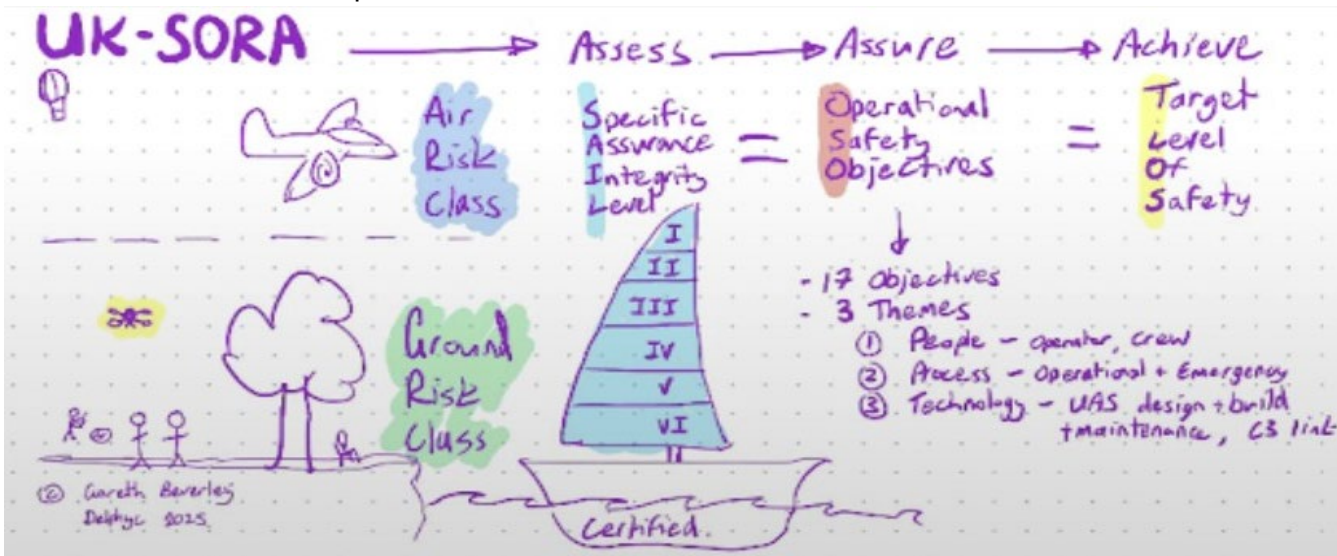 UK-SORA
Assess
Assure
Achieve
Air
Risk
Class
Specific
Assurance
Integrity
Level
=
Operational
Safety
Objectives
=
Target
Level
Of
Safety
I
II
III
IV
V
VI
Certified.
Ground
Risk
Class
- 17 Objectives
- 3 Themes
① People - operator, crew
② Process - Operational + Emergency
③ Technology - UAS design + build
+ maintenance, C3 link
© Gareth Beverley
Delphyc 2025